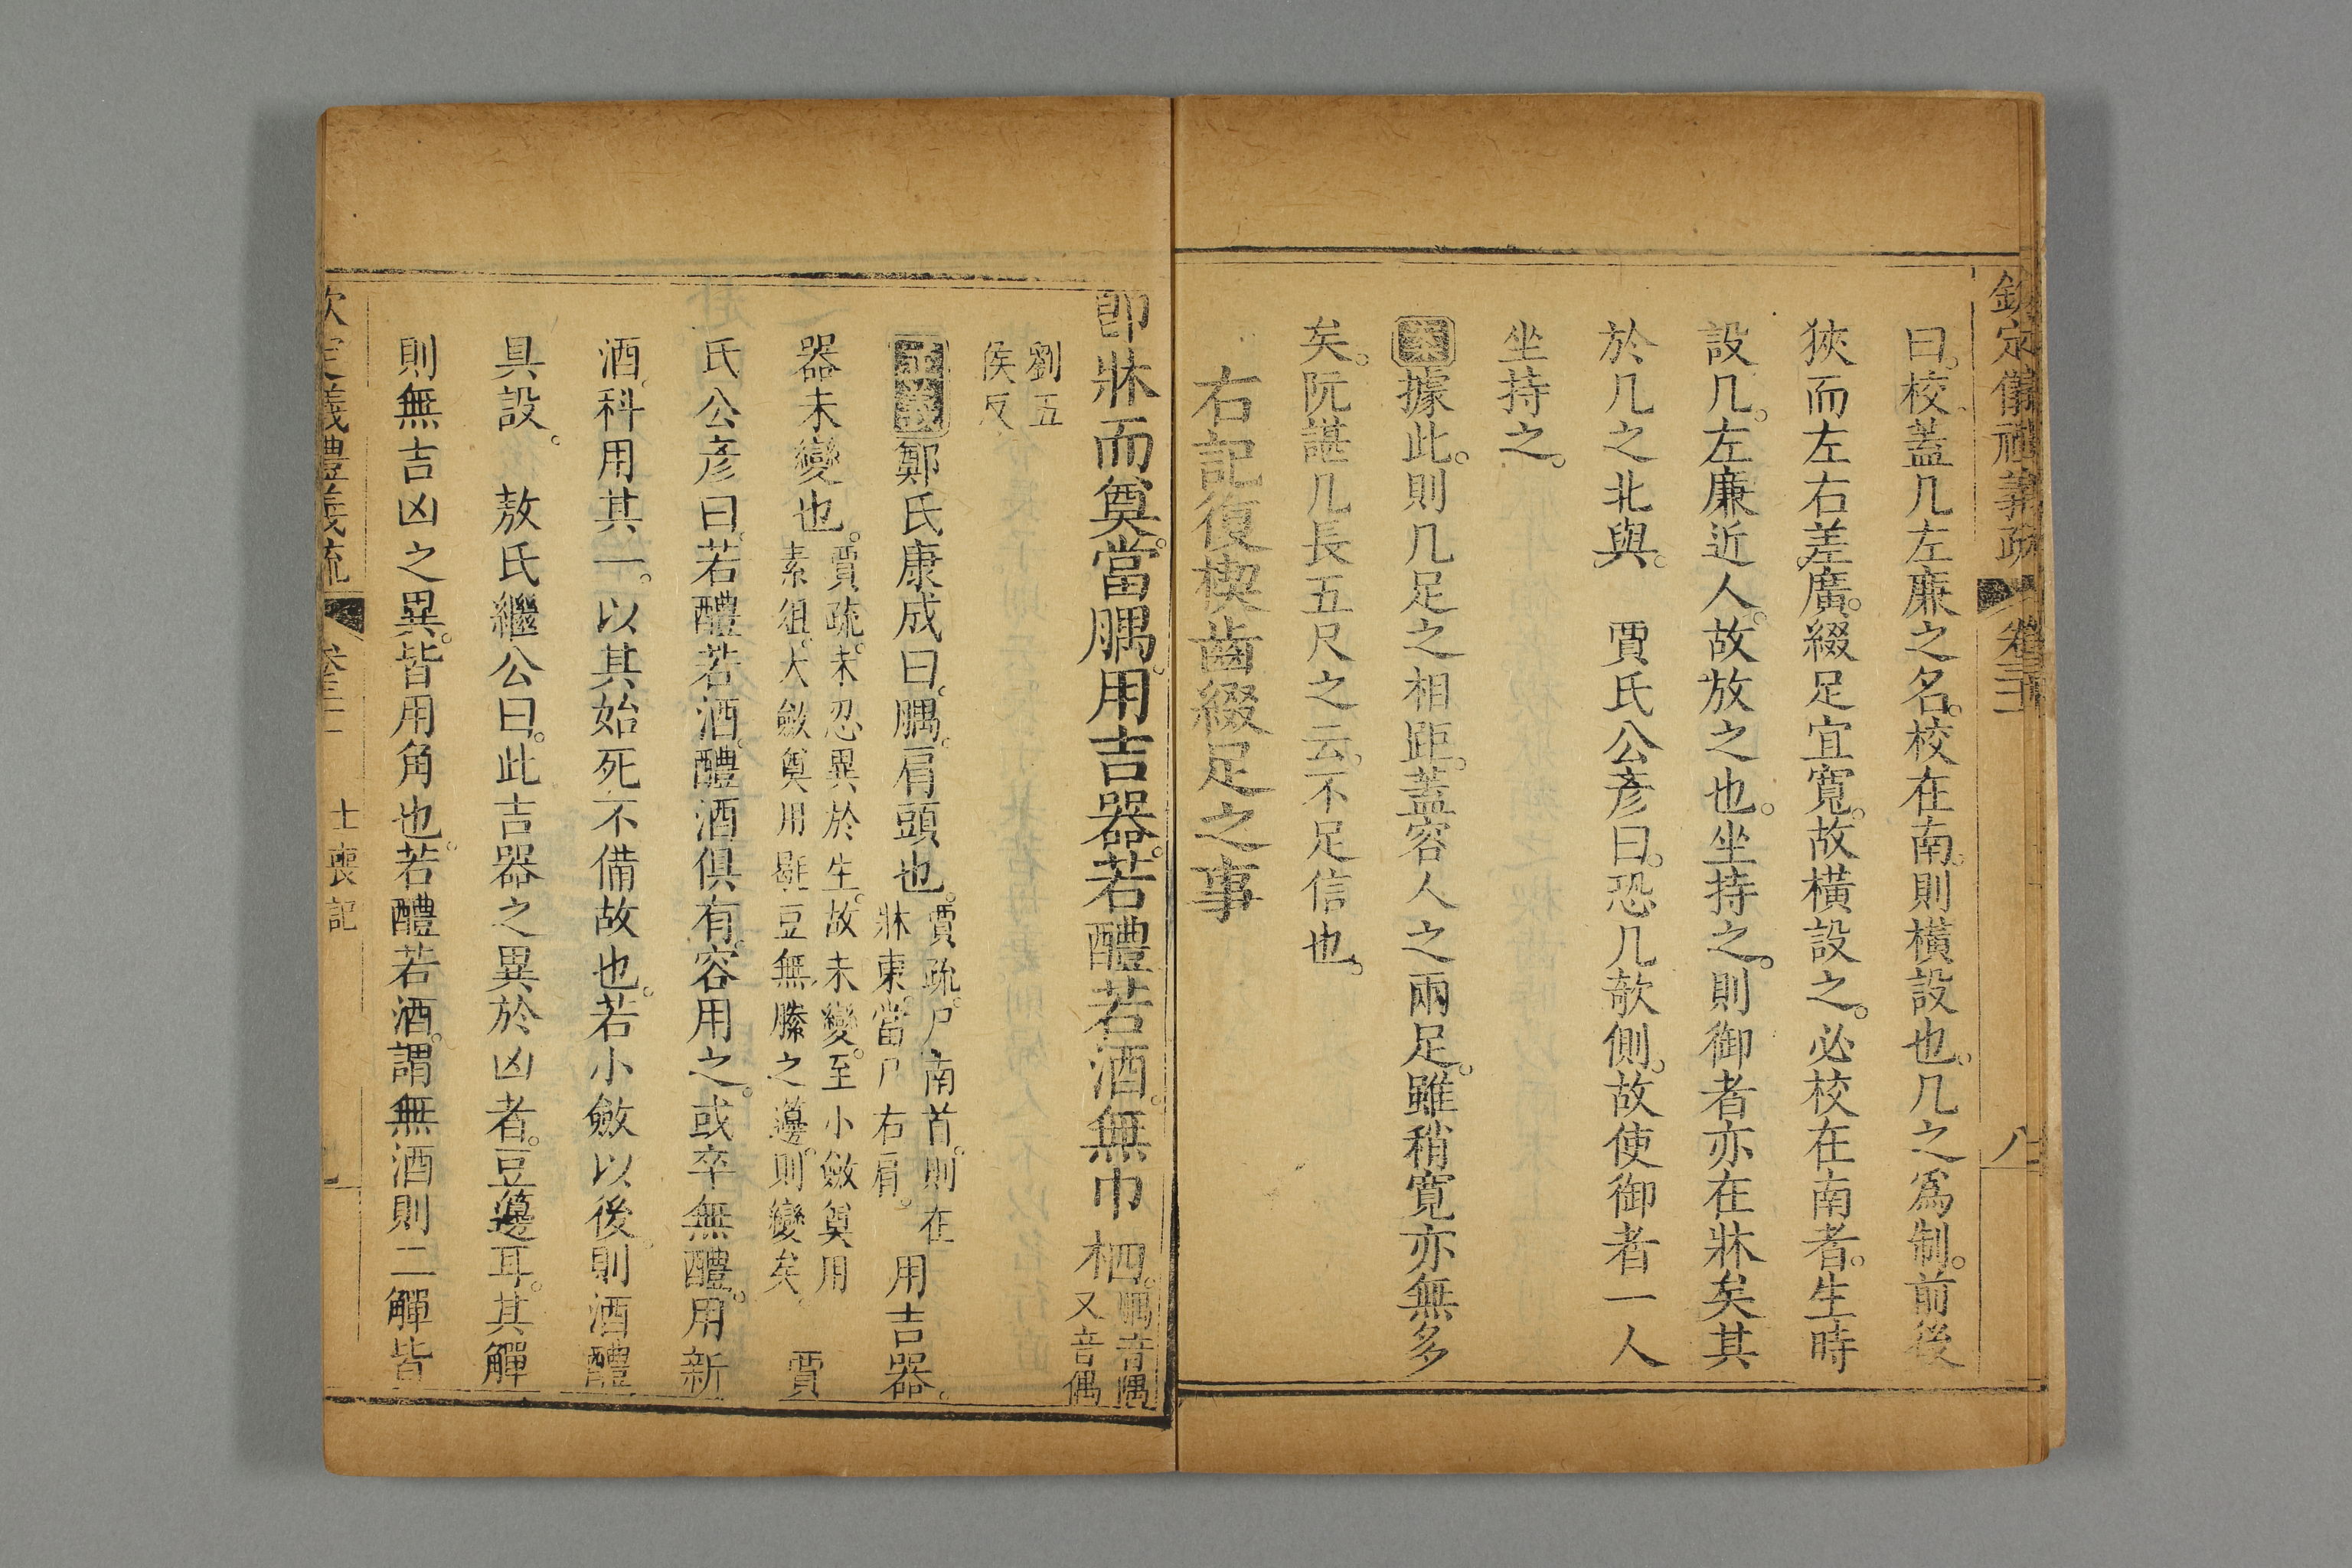 欽定儀禮義疏 八
曰。校。蓋几左廉之名。校在南。則橫設也。几之為制。前後
狹而左右差廣。綴足宜寬。故橫設之。必校在南者。生時
設几。左廉近人。故放之也。坐持之。則御者亦在牀矣其
於几之北與。 賈氏公彥曰。恐几欹側。故使御者一人
坐持之。
案據此。則几足之相距。蓋容人之兩足。雖稍寬亦無多
矣。阮諶几長五尺之云。不足信也。
右記復楔齒綴足之事
即牀而奠。當腢。用吉器。若醴若酒。無巾柶。
腢音隅
又音偶
劉五
侯反
正義鄭氏康成曰。腢。肩頭也。
賈疏。尸南首。則在
牀東。當尸右肩。
用吉器。
器未變也。
賈疏。未忍異於生。故未變。至小斂奠用
素俎。大斂奠用毼豆無縢之籩。則變矣
賈
氏公彥曰。若醴若酒。醴酒俱有。容用之。或卒無醴。用新
酒。科用其一。以其始死不備故也。若小斂以後。則酒醴
具設。 敖氏繼公曰。此吉器之異於凶者。豆籩耳。其觶
則無吉凶之異。皆用角也。若醴若酒。謂無酒則二觶皆
士喪記